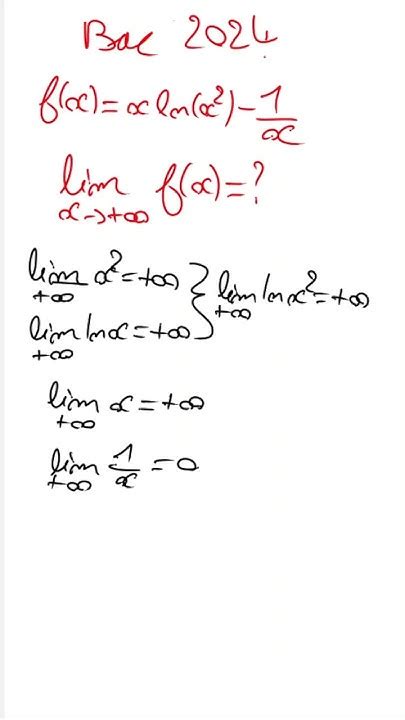 Bac 2024
f(x)=x ln(x²)-1/x
lim f(x)=?
x→+∞
lim x²=+∞ } lim ln x²=+∞
+∞ +∞
lim ln x=+∞
+∞
lim x=+∞
+∞
lim 1/x =0
+∞